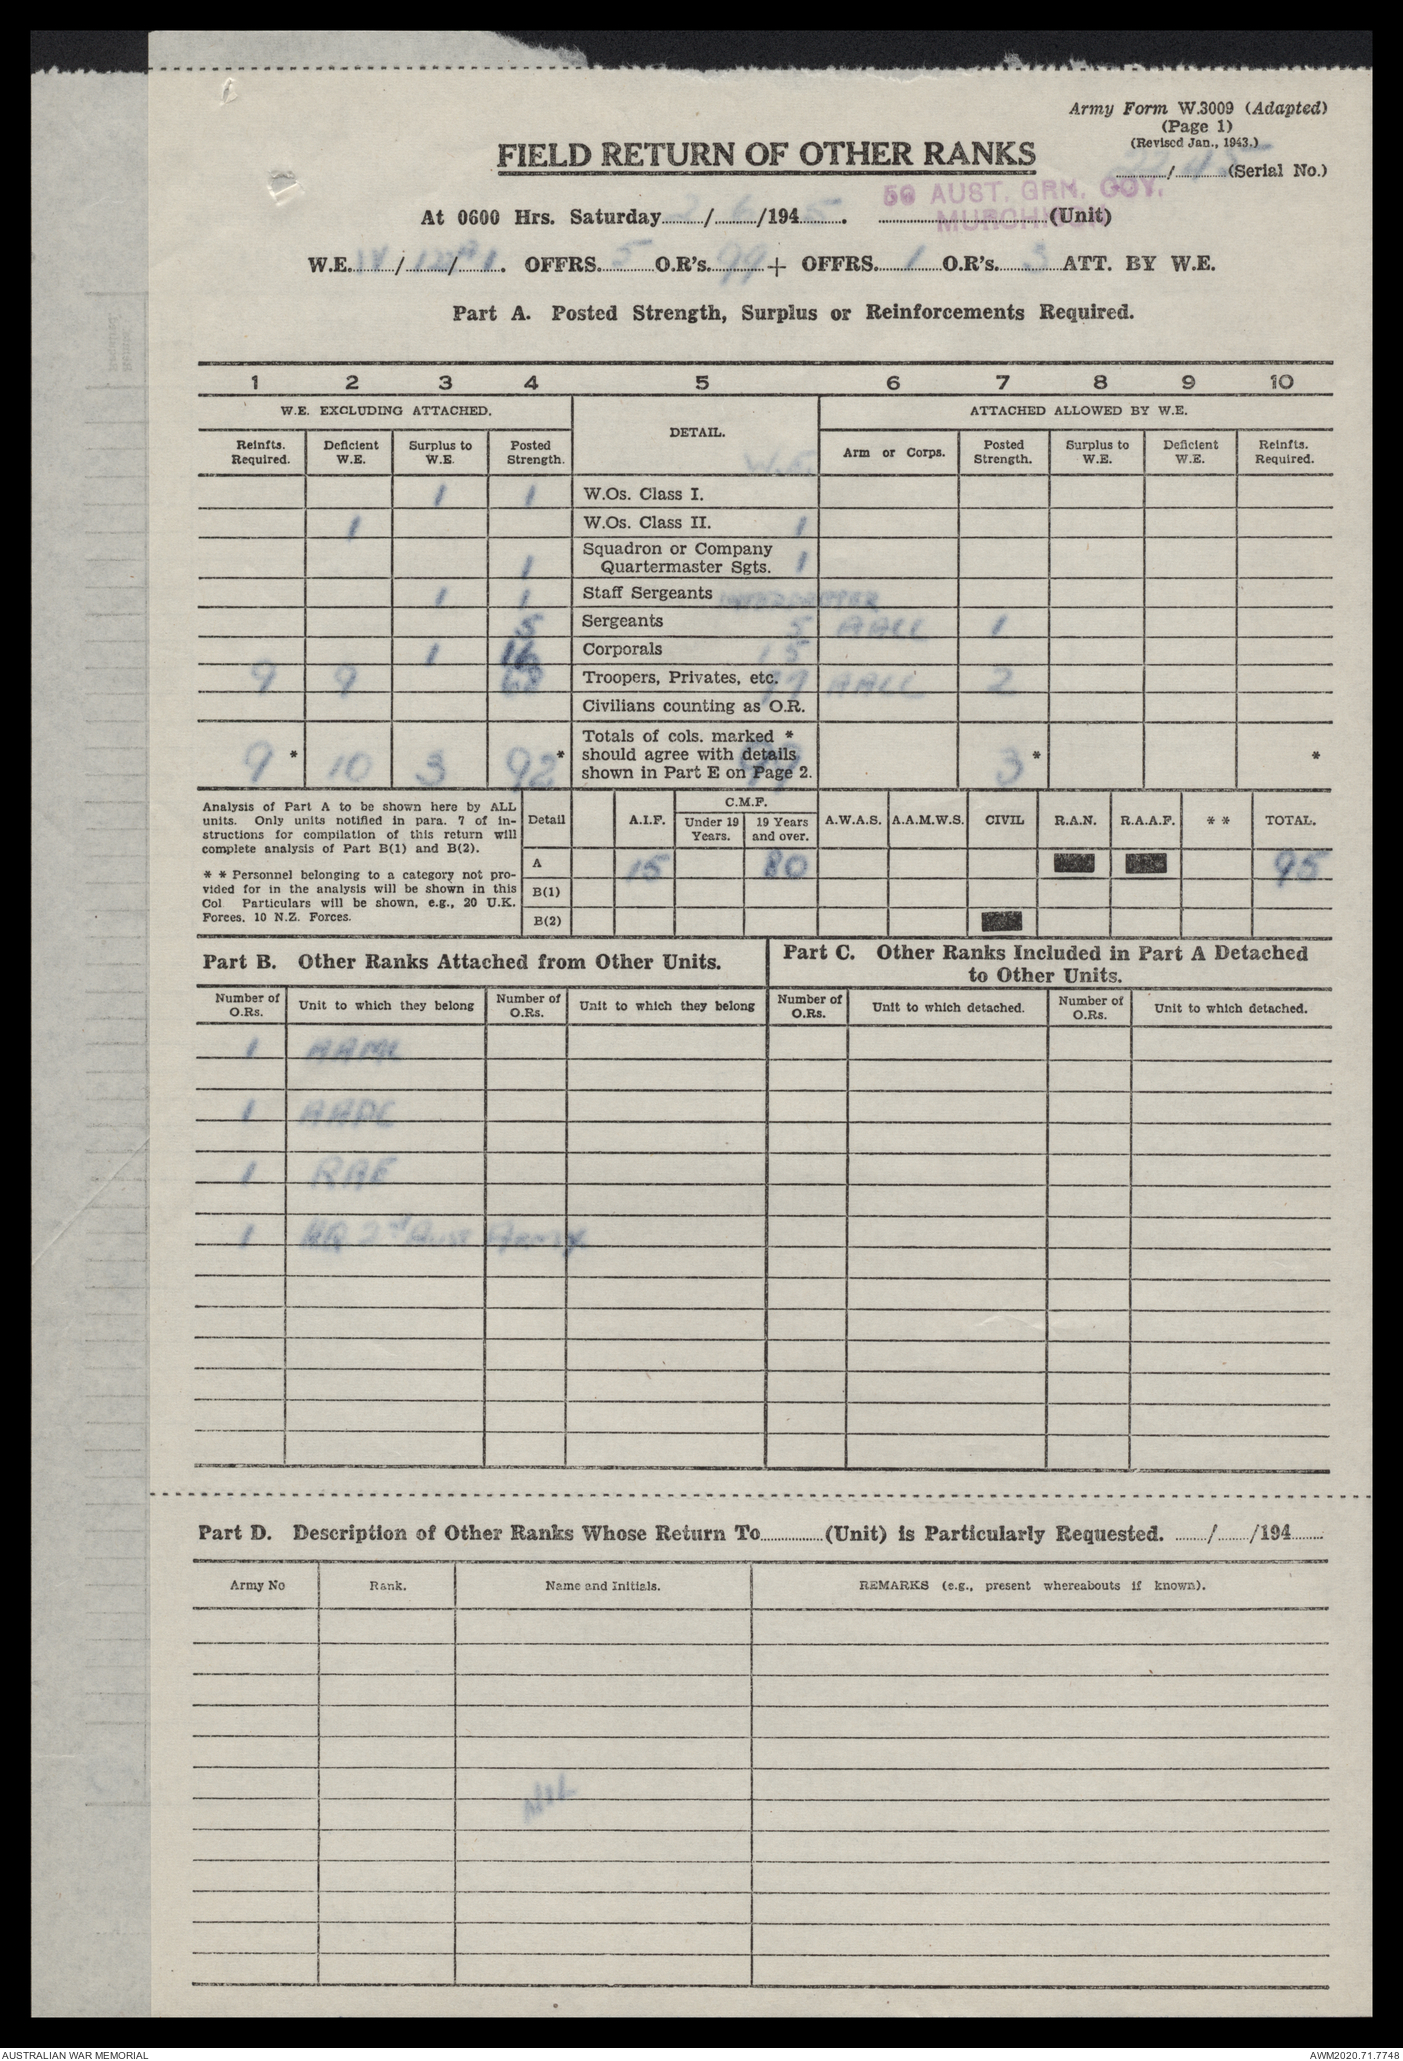 Army Form W.3009 (Adapted)
(Page 1)
(Revised Jan., 1943.)
FIELD RETURN OF OTHER RANKS
22/45 (Serial No.)
56 AUST. GRN. COY.
At 0600 Hrs. Saturday 2/6/1945. (Unit)
MURCHISON
W.E. IV/122A/1. OFFRS. 5 O.R's. 99 + OFFRS. 1 O.R's. 3 ATT. BY W.E.
Part A. Posted Strength, Surplus or Reinforcements Required.
1 2 3 4 5 6 7 8 9 10
W.E. EXCLUDING ATTACHED. DETAIL. ATTACHED ALLOWED BY W.E.
Reinfts. Required. Deficient W.E. Surplus to W.E. Posted Strength. W.E. Arm or Corps. Posted Strength. Surplus to W.E. Deficient W.E. Reinfts. Required.
1 1 W.Os. Class I.
1 W.Os. Class II. 1
1 Squadron or Company Quartermaster Sgts. 1
1 1 Staff Sergeants INTERPRETER
5 Sergeants 5 AALC 1
1 16 Corporals 15
9 9 68 Troopers, Privates, etc. 77 AALC 2
Civilians counting as O.R.
9 * 10 3 92 * Totals of cols. marked * should agree with details shown in Part E on Page 2. 99 3 * *
Analysis of Part A to be shown here by ALL
units. Only units notified in para. 7 of in-
structions for compilation of this return will
complete analysis of Part B(1) and B(2).
* * Personnel belonging to a category not pro-
vided for in the analysis will be shown in this
Col Particulars will be shown, e.g., 20 U.K.
Forces, 10 N.Z. Forces.
Detail A.I.F. C.M.F. Under 19 Years. 19 Years and over. A.W.A.S. A.A.M.W.S. CIVIL R.A.N. R.A.A.F. * * TOTAL.
A 15 80 95
B(1)
B(2)
Part B. Other Ranks Attached from Other Units.
Part C. Other Ranks Included in Part A Detached
to Other Units.
Number of O.Rs. Unit to which they belong Number of O.Rs. Unit to which they belong Number of O.Rs. Unit to which detached. Number of O.Rs. Unit to which detached.
1 AAMC
1 AAPC
1 RAE
1 HQ 2nd Aust Army
Part D. Description of Other Ranks Whose Return To (Unit) is Particularly Requested. / /194
Army No Rank. Name and Initials. REMARKS (e.g., present whereabouts if known).
NIL
AUSTRALIAN WAR MEMORIAL
AWM2020.71.7748